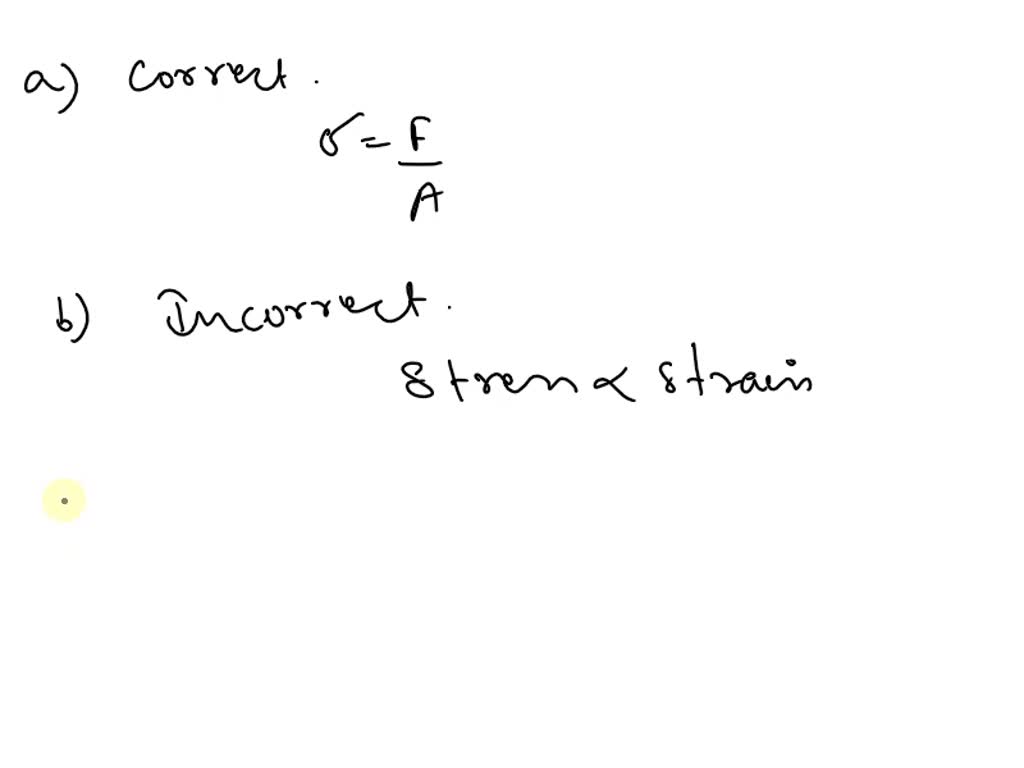 a) Correct.
σ = F
A
b) Incorrect.
Stress ∝ strain